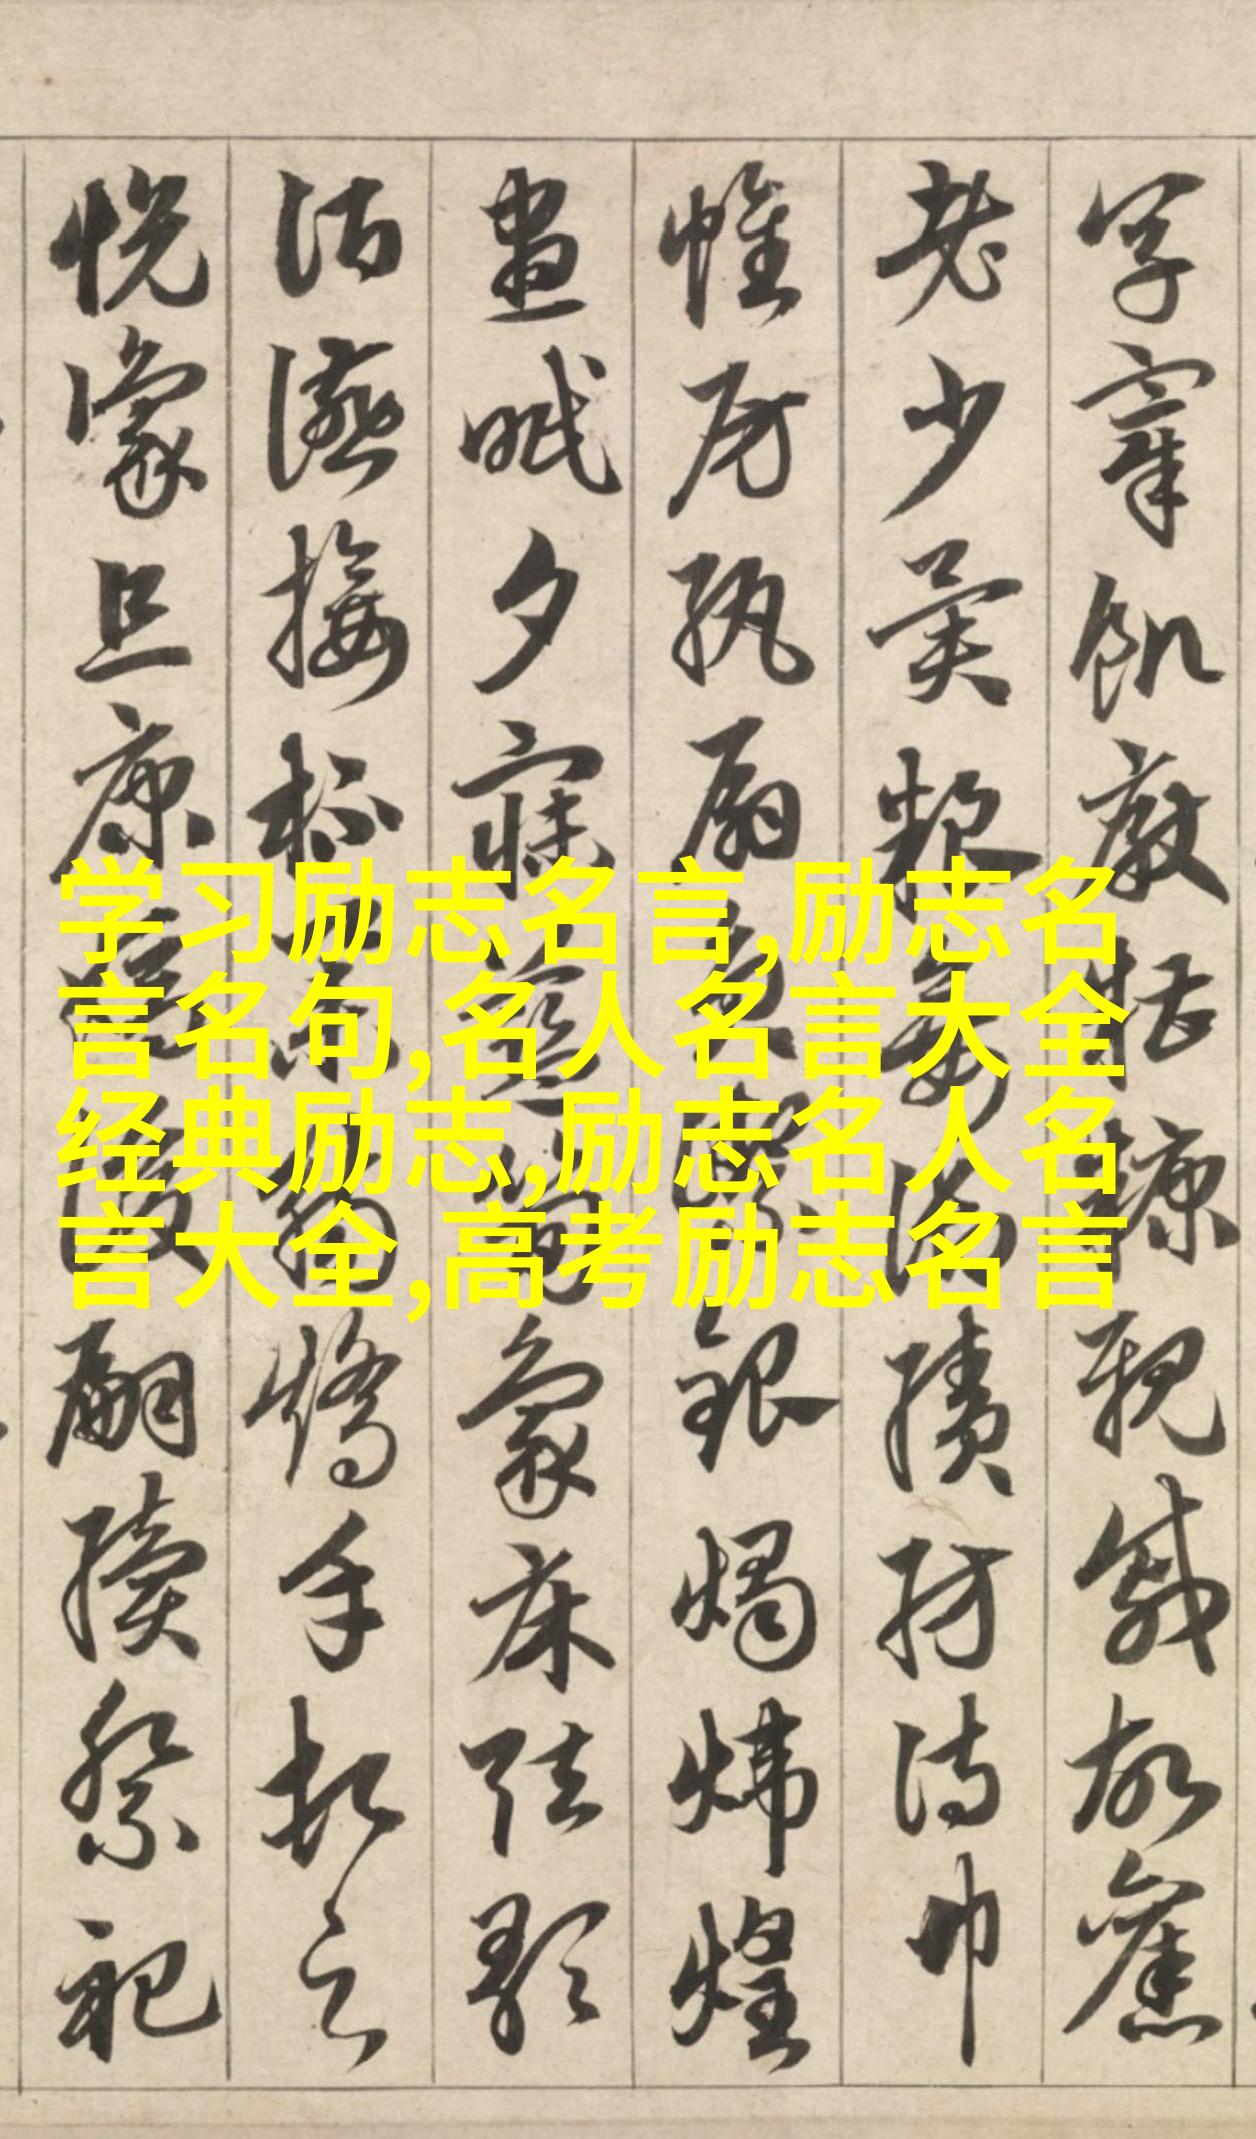 烹宰飢厭糟糠親戚故舊
老少異糧妾御績紡侍巾
帷房紈扇圓潔銀燭煒煌
晝眠夕寐藍笋象床弦歌
酒讌接杯舉觴矯手頓足
悅豫且康嫡後嗣續祭祀
学习励志名言,励志名
言名句,名人名言大全
经典励志,励志名人名
言大全,高考励志名言